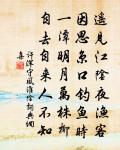 遥见江阴夜渔客
因思京口钓鱼时
一潭明月万株柳
自去自来人不知
许浑守风淮阴词典网
集